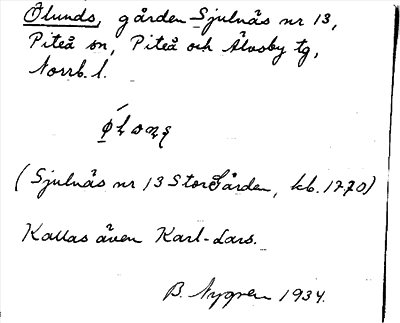 Ölunds, gården Sjulnäs nr 13,
Piteå sn, Piteå och Älvsby tg,
Norrb. l.
(Sjulnäs nr 13 Storgården, kb. 1770)
Kallas även Karl-Lars.
B. Nygren 1934.